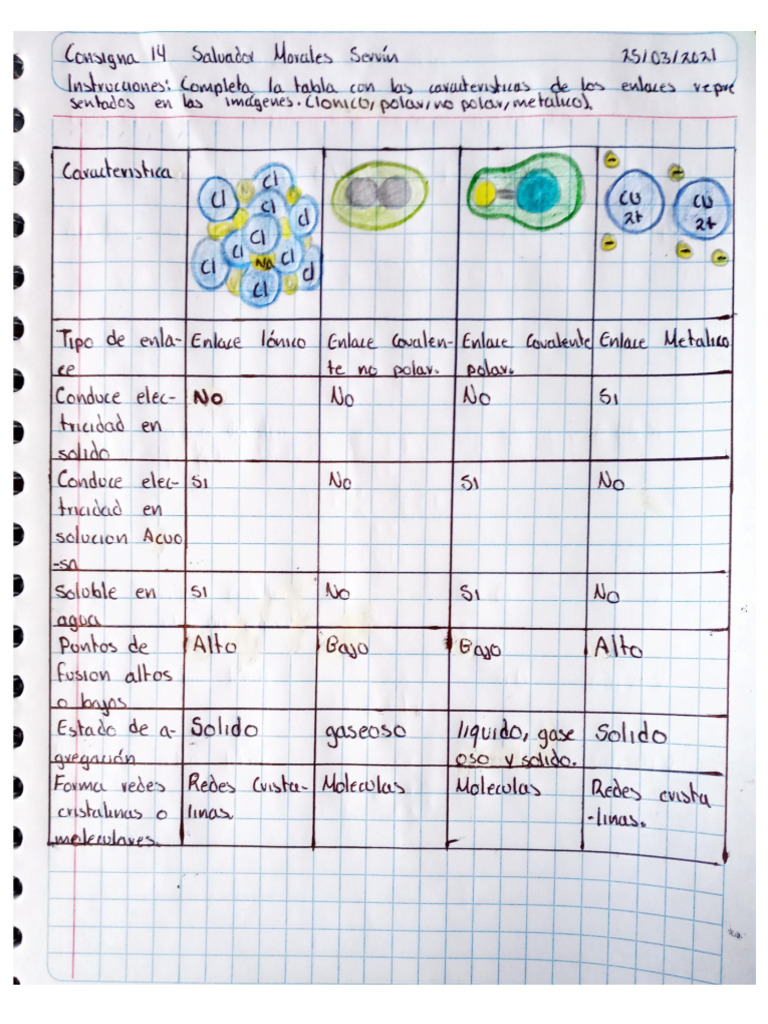 Consigna 14 Salvador Morales Servín 25/03/2021
Instrucciones: Completa la tabla con las caracteristicas de los enlaces repre
sentados en las imágenes. (Ionico, polar, no polar, metalico).
Caracteristica
Cl Cl Cl Cl Cl Cl Cl Na Cl Cl Cl
CU 2+ CU 2+
Tipo de enla- Enlace Iónico Enlace Covalen- Enlace Covalente Enlace Metalico
ce te no polar. polar.
Conduce elec- No No No SI
tricidad en
solido
Conduce elec- SI No SI No
tricidad en
solucion Acuo
-sa
Soluble en SI No SI No
agua
Puntos de Alto Bajo Bajo Alto
fusion altos
o bajos
Estado de a- Solido gaseoso liquido, gase Solido
gregación oso y solido.
Forma redes Redes Crista- Moleculas Moleculas Redes crista
cristalinas o linas. -linas.
moleculares.